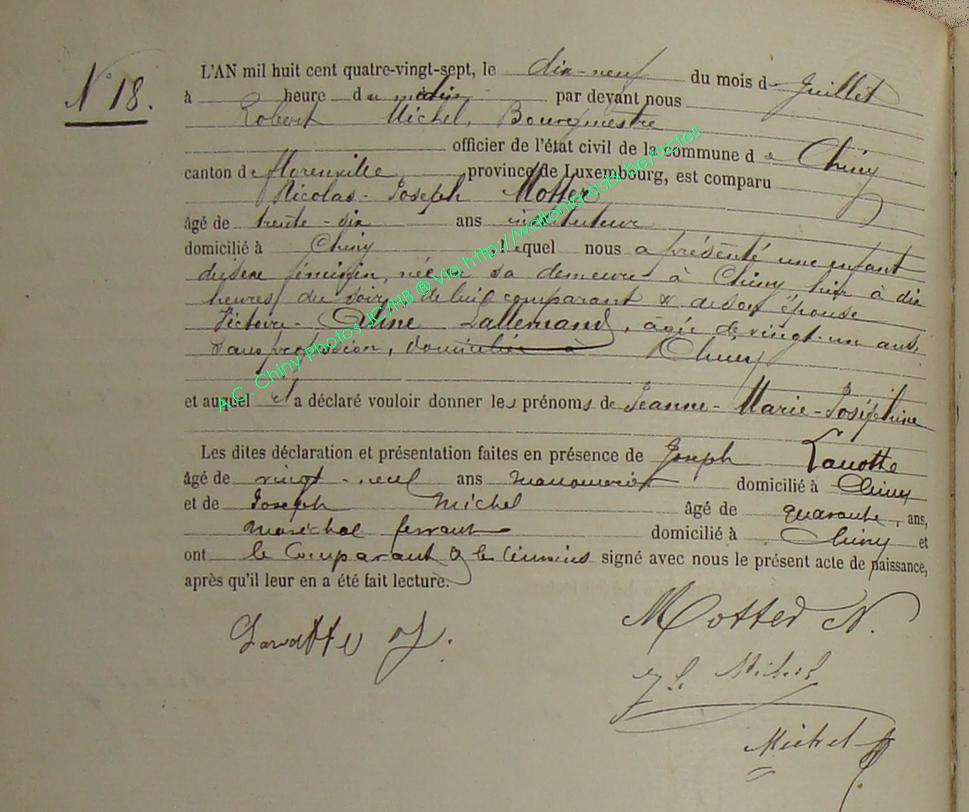 N° 18.
L'AN mil huit cent quatre-vingt-sept, le dix-neuf du mois de Juillet
à heure du matin par devant nous
Robert Michel, Bourgmestre
officier de l'état civil de la commune de Chiny
canton de florenville province de Luxembourg, est comparu
Nicolas-Joseph Motter
âgé de trente-six ans instituteur
domicilié à Chiny lequel nous a présenté une enfant
du sexe féminin, née en sa demeure à Chiny hier à dix
heures du soir, de lui comparant & de son épouse
Victoire- Lallemand, âgée de vingt-un ans,
sans profession, domiciliée à Chiny
et auquel il a déclaré vouloir donner les prénoms de Jeanne-Marie-Joséphine
Les dites déclaration et présentation faites en présence de Joseph Lavotte
âgé de vingt-neuf ans manouvrier domicilié à Chiny
et de Joseph Michel âgé de quarante, ans,
maréchal ferrant domicilié à Chiny et
ont le Comparant & les témoins signé avec nous le présent acte de naissance,
après qu'il leur en a été fait lecture.
Lavotte J.
Motter N.
Michel
Michel
A.C. Chiny Photos JC/HB @ Via http://walloniebox.be/actes